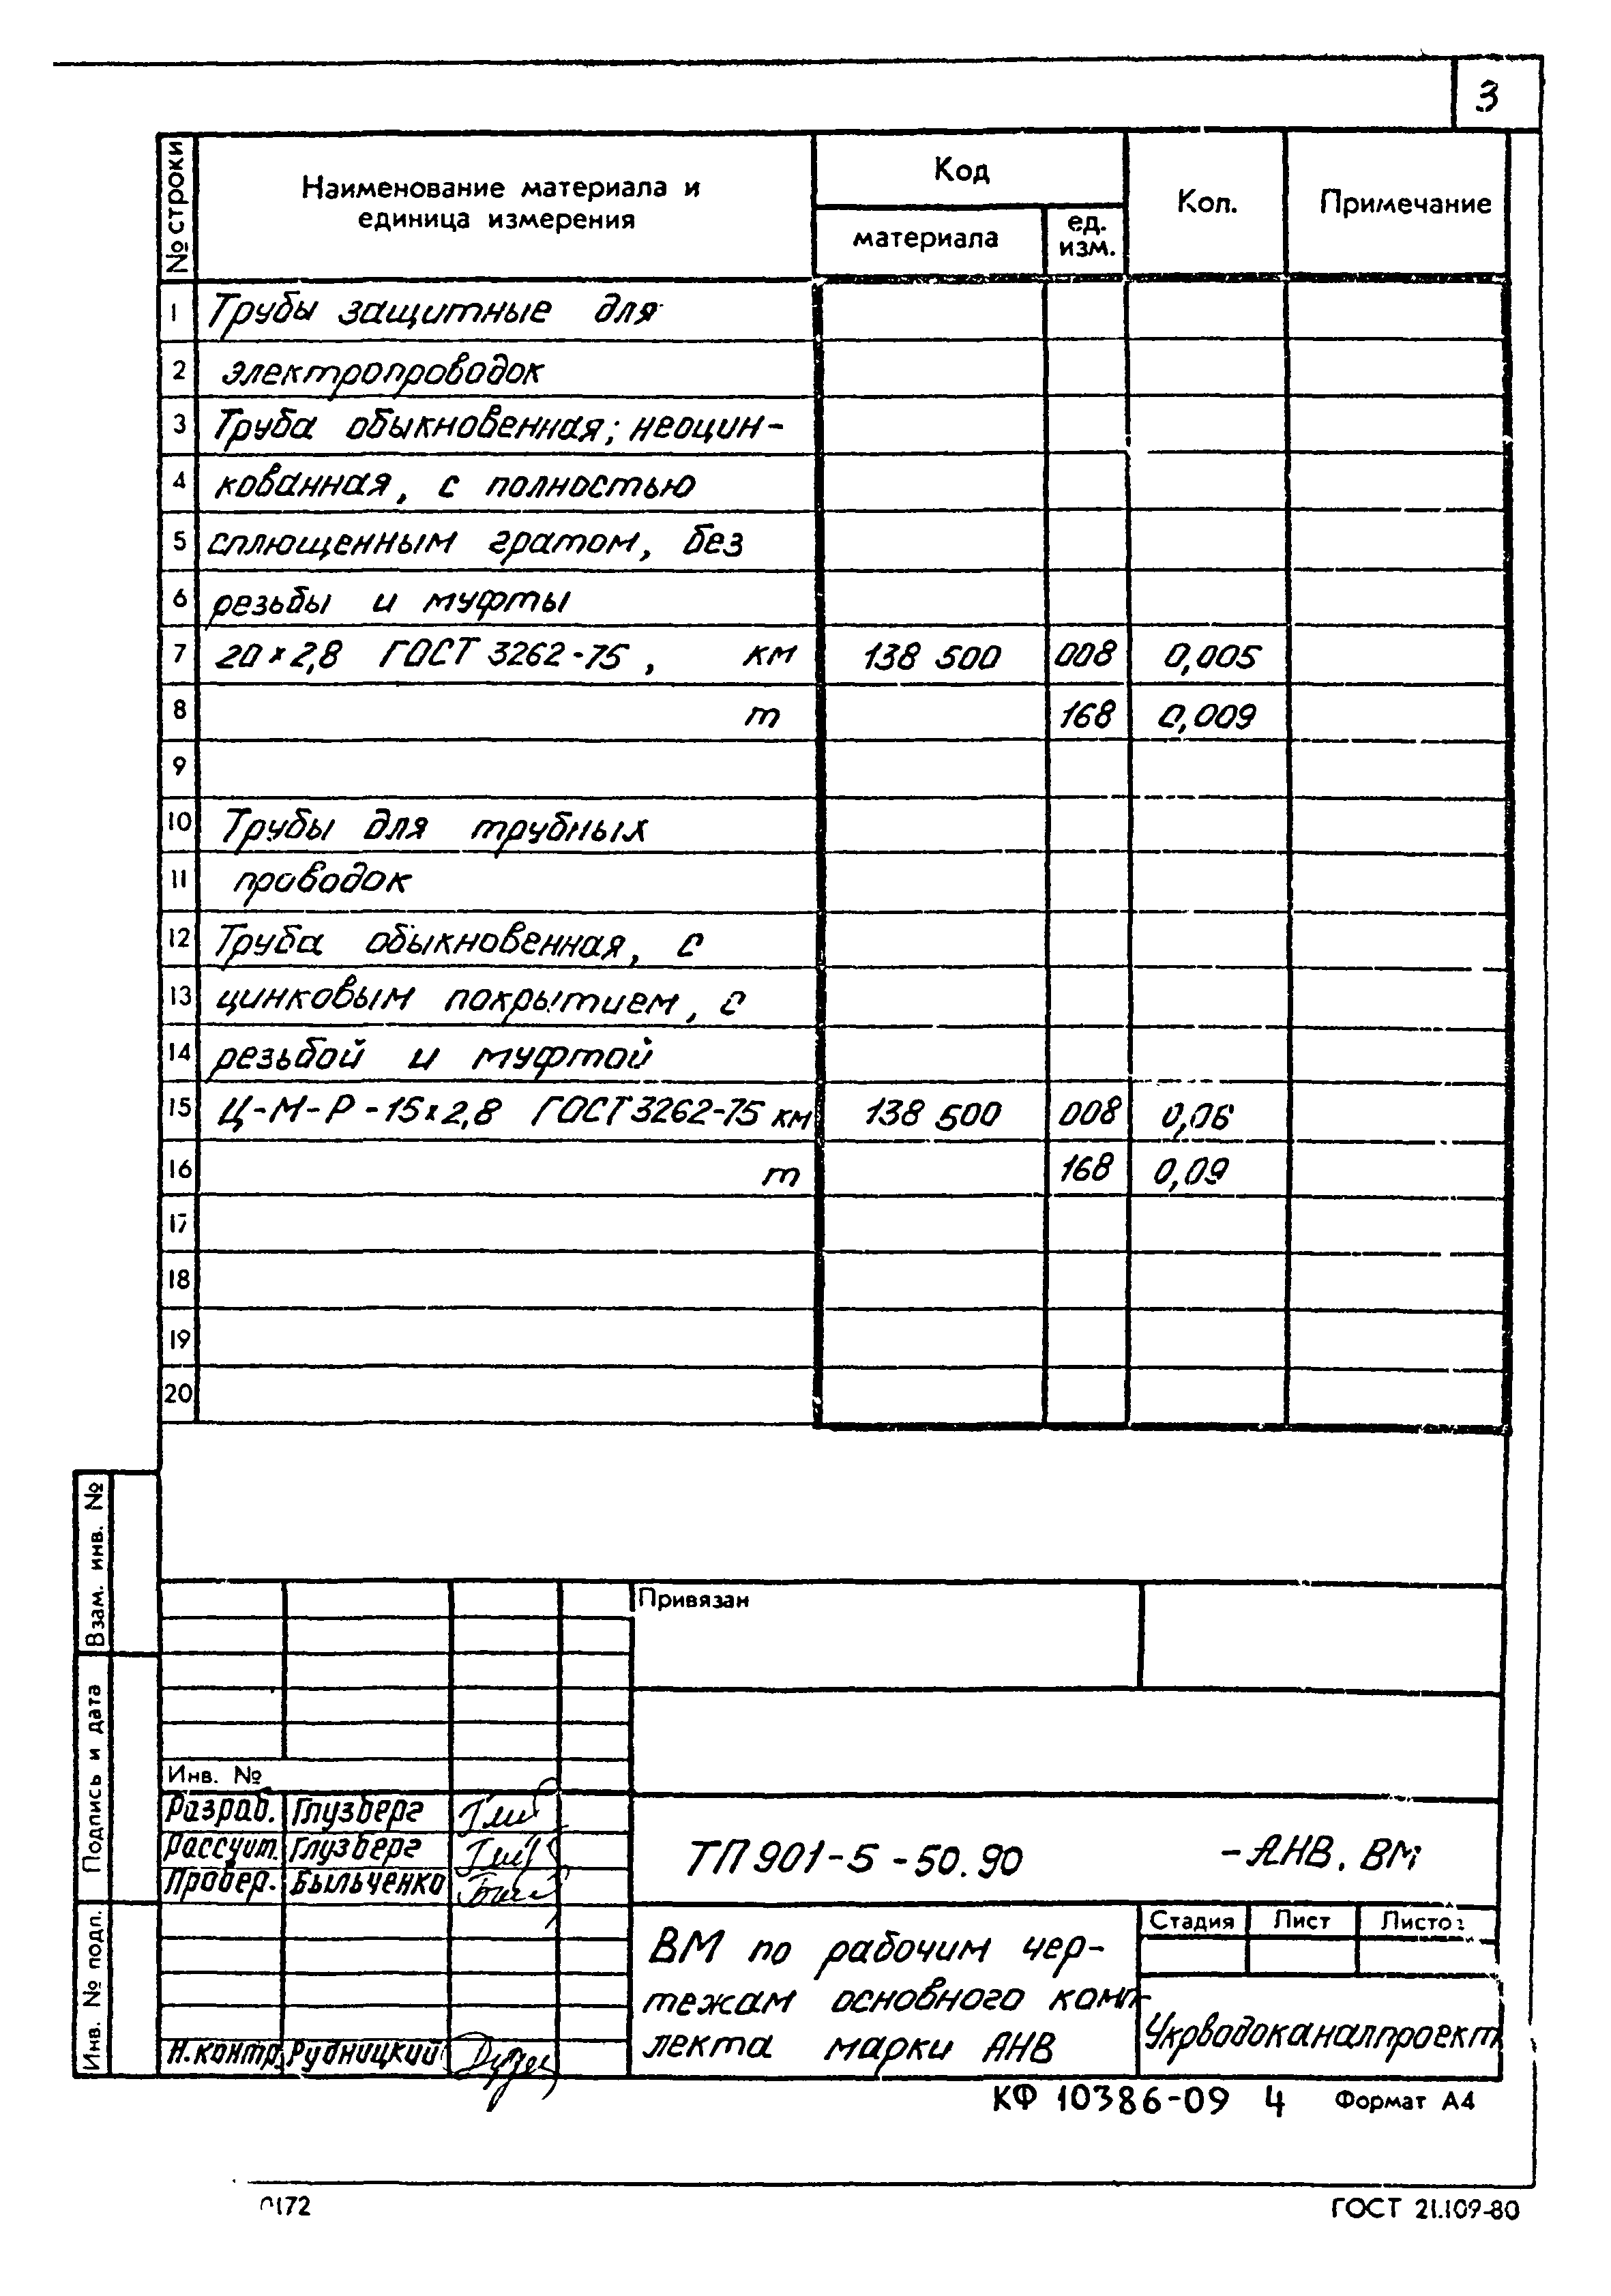 3
№ строки
Наименование материала и
единица измерения
Код
материала
ед.
изм.
Кол.
Примечание
1 Трубы защитные для
2 электропроводок
3 Труба обыкновенная; неоцин-
4 кованная, с полностью
5 сплющенным гратом, без
6 резьбы и муфты
7 20×2,8 ГОСТ 3262-75, км 138 500 008 0,005
8 т 168 0,009
9
10 Трубы для трубных
11 проводок
12 Труба обыкновенная, с
13 цинковым покрытием, с
14 резьбой и муфтой
15 Ц-М-Р-15×2,8 ГОСТ 3262-75 км 138 500 008 0,06
16 т 168 0,09
17
18
19
20
Взам. инв. №
Подпись и дата
Инв. № подл.
Привязан
Инв. №
Разраб. Глузберг
Рассчит. Глузберг
Провер. Быльченко
Н.контр. Рудницкий
ТП 901-5-50.90 -АНВ.ВМ
ВМ по рабочим чер-
тежам основного комп-
лекта марки АНВ
Стадия Лист
Укрводоканалпроект
КФ 10386-09 4 Формат А4
172
ГОСТ 21.109-80